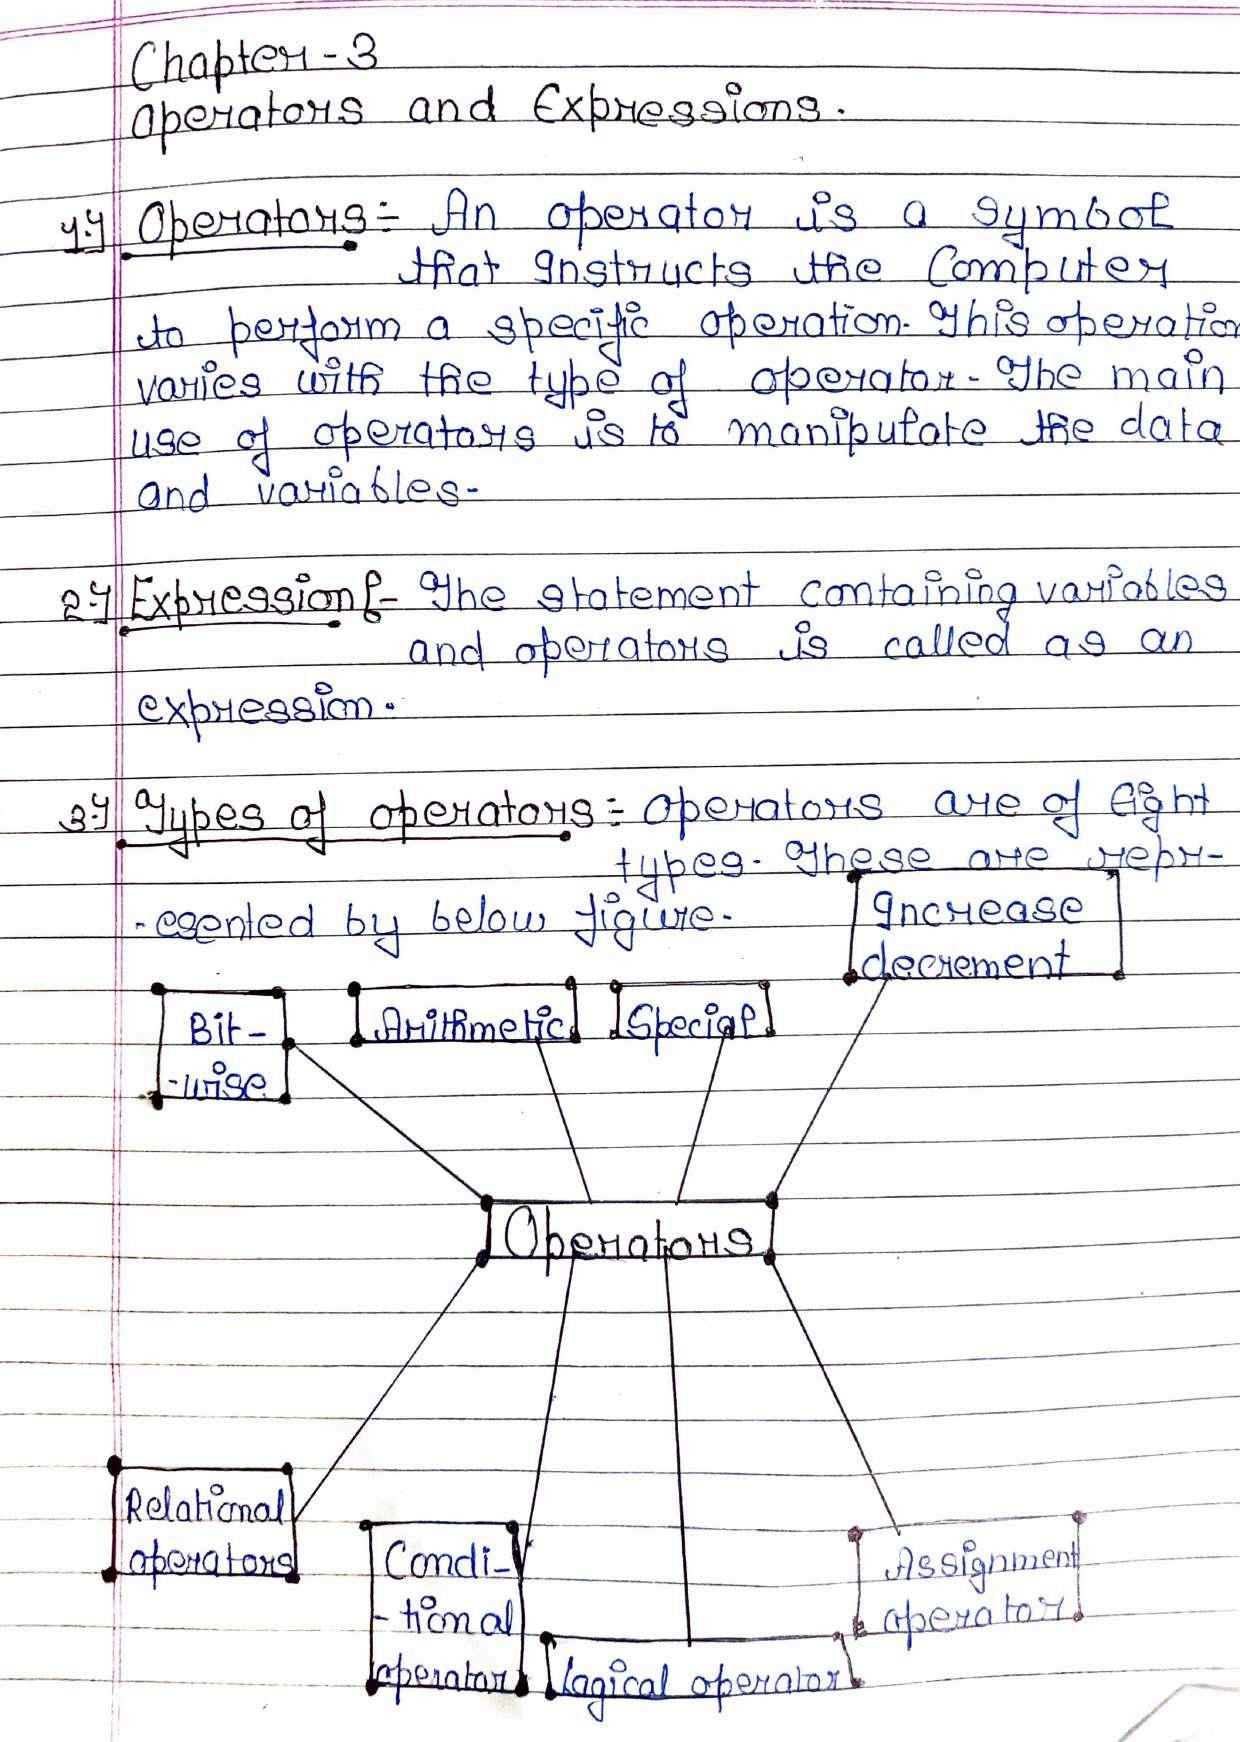 Chapter-3
Operators and Expressions.
1.) Operators:- An operator is a symbol
that Instructs the Computer
to perform a specific operation. This operation
varies with the type of operator. The main
use of operators is to manipulate the data
and variables.
2.) Expression:- The statement containing variables
and operators is called as an
expression.
3.) Types of operators:- Operators are of Eight
types. These are repr-
-esented by below figure.
Increase
decrement
Bit-
-wise
Arithmetic
Special
Operators
Relational
operators
Condi-
-tional
operator
Logical operator
Assignment
operator